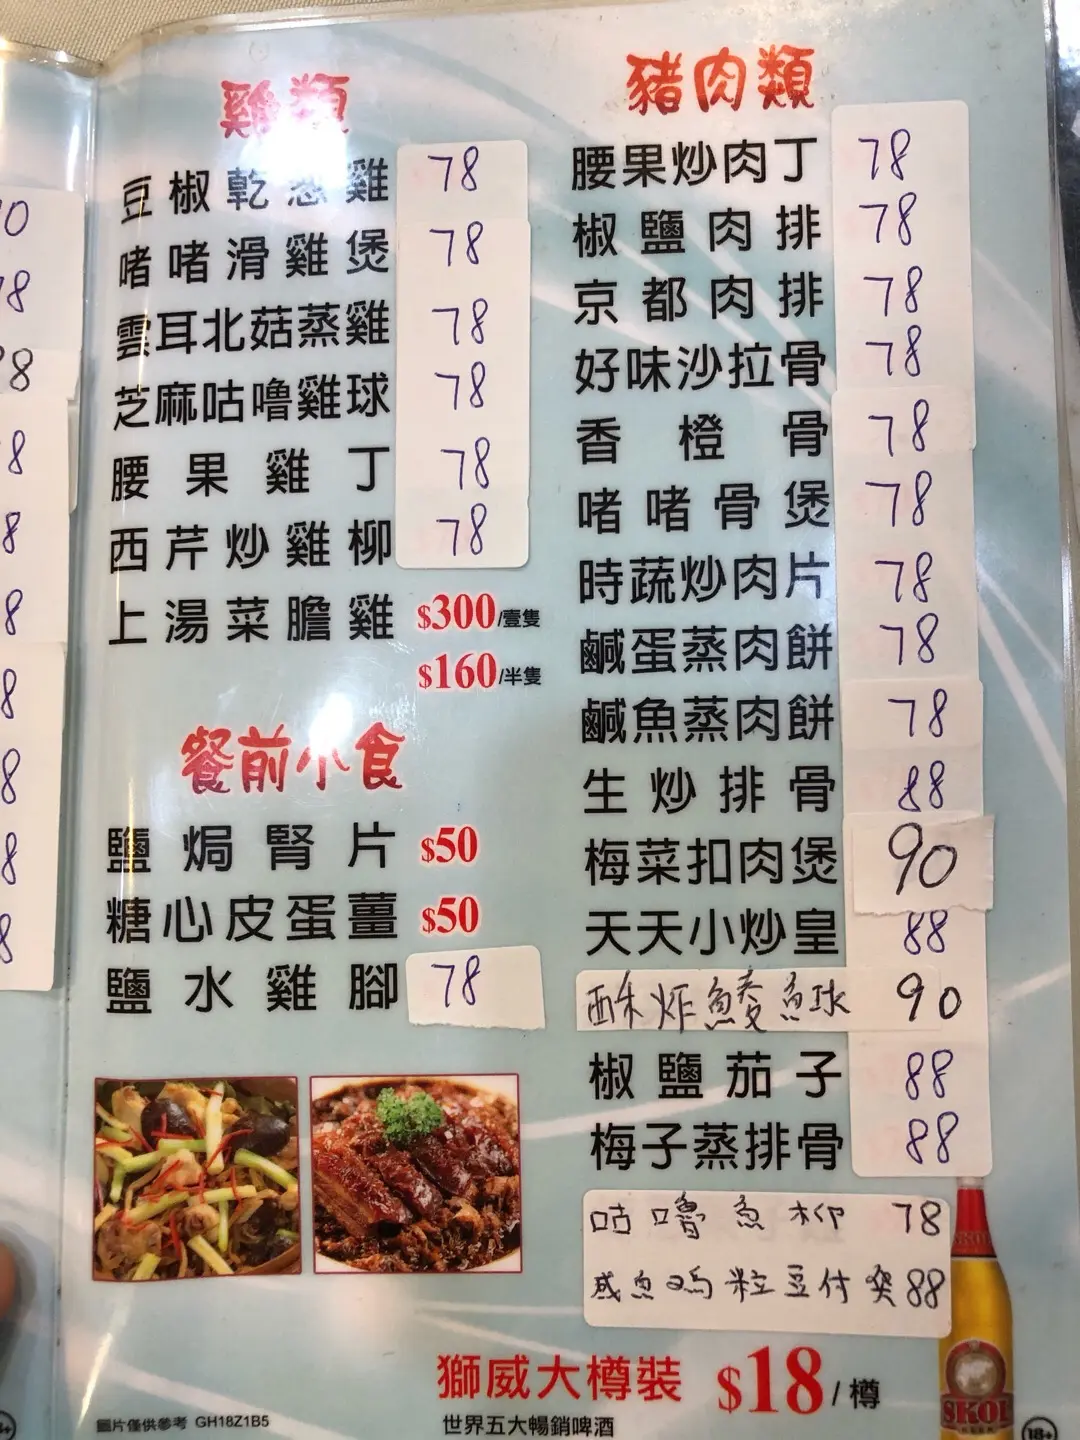 雞類
豆椒乾葱雞 78
啫啫滑雞煲 78
雲耳北菇蒸雞 78
芝麻咕嚕雞球 78
腰果雞丁 78
西芹炒雞柳 78
上湯菜膽雞 $300/壹隻
$160/半隻
餐前小食
鹽焗腎片 $50
糖心皮蛋薑 $50
鹽水雞腳 78
豬肉類
腰果炒肉丁 78
椒鹽肉排 78
京都肉排 78
好味沙拉骨 78
香橙骨 78
啫啫骨煲 78
時蔬炒肉片 78
鹹蛋蒸肉餅 78
鹹魚蒸肉餅 78
生炒排骨 88
梅菜扣肉煲 90
天天小炒皇 88
酥炸鯪魚球 90
椒鹽茄子 88
梅子蒸排骨 88
咕嚕魚柳 78
咸魚鸡粒豆付煲 88
獅威大樽裝 $18/樽
世界五大暢銷啤酒
圖片僅供參考 GH18Z1B5
SKOL
18+